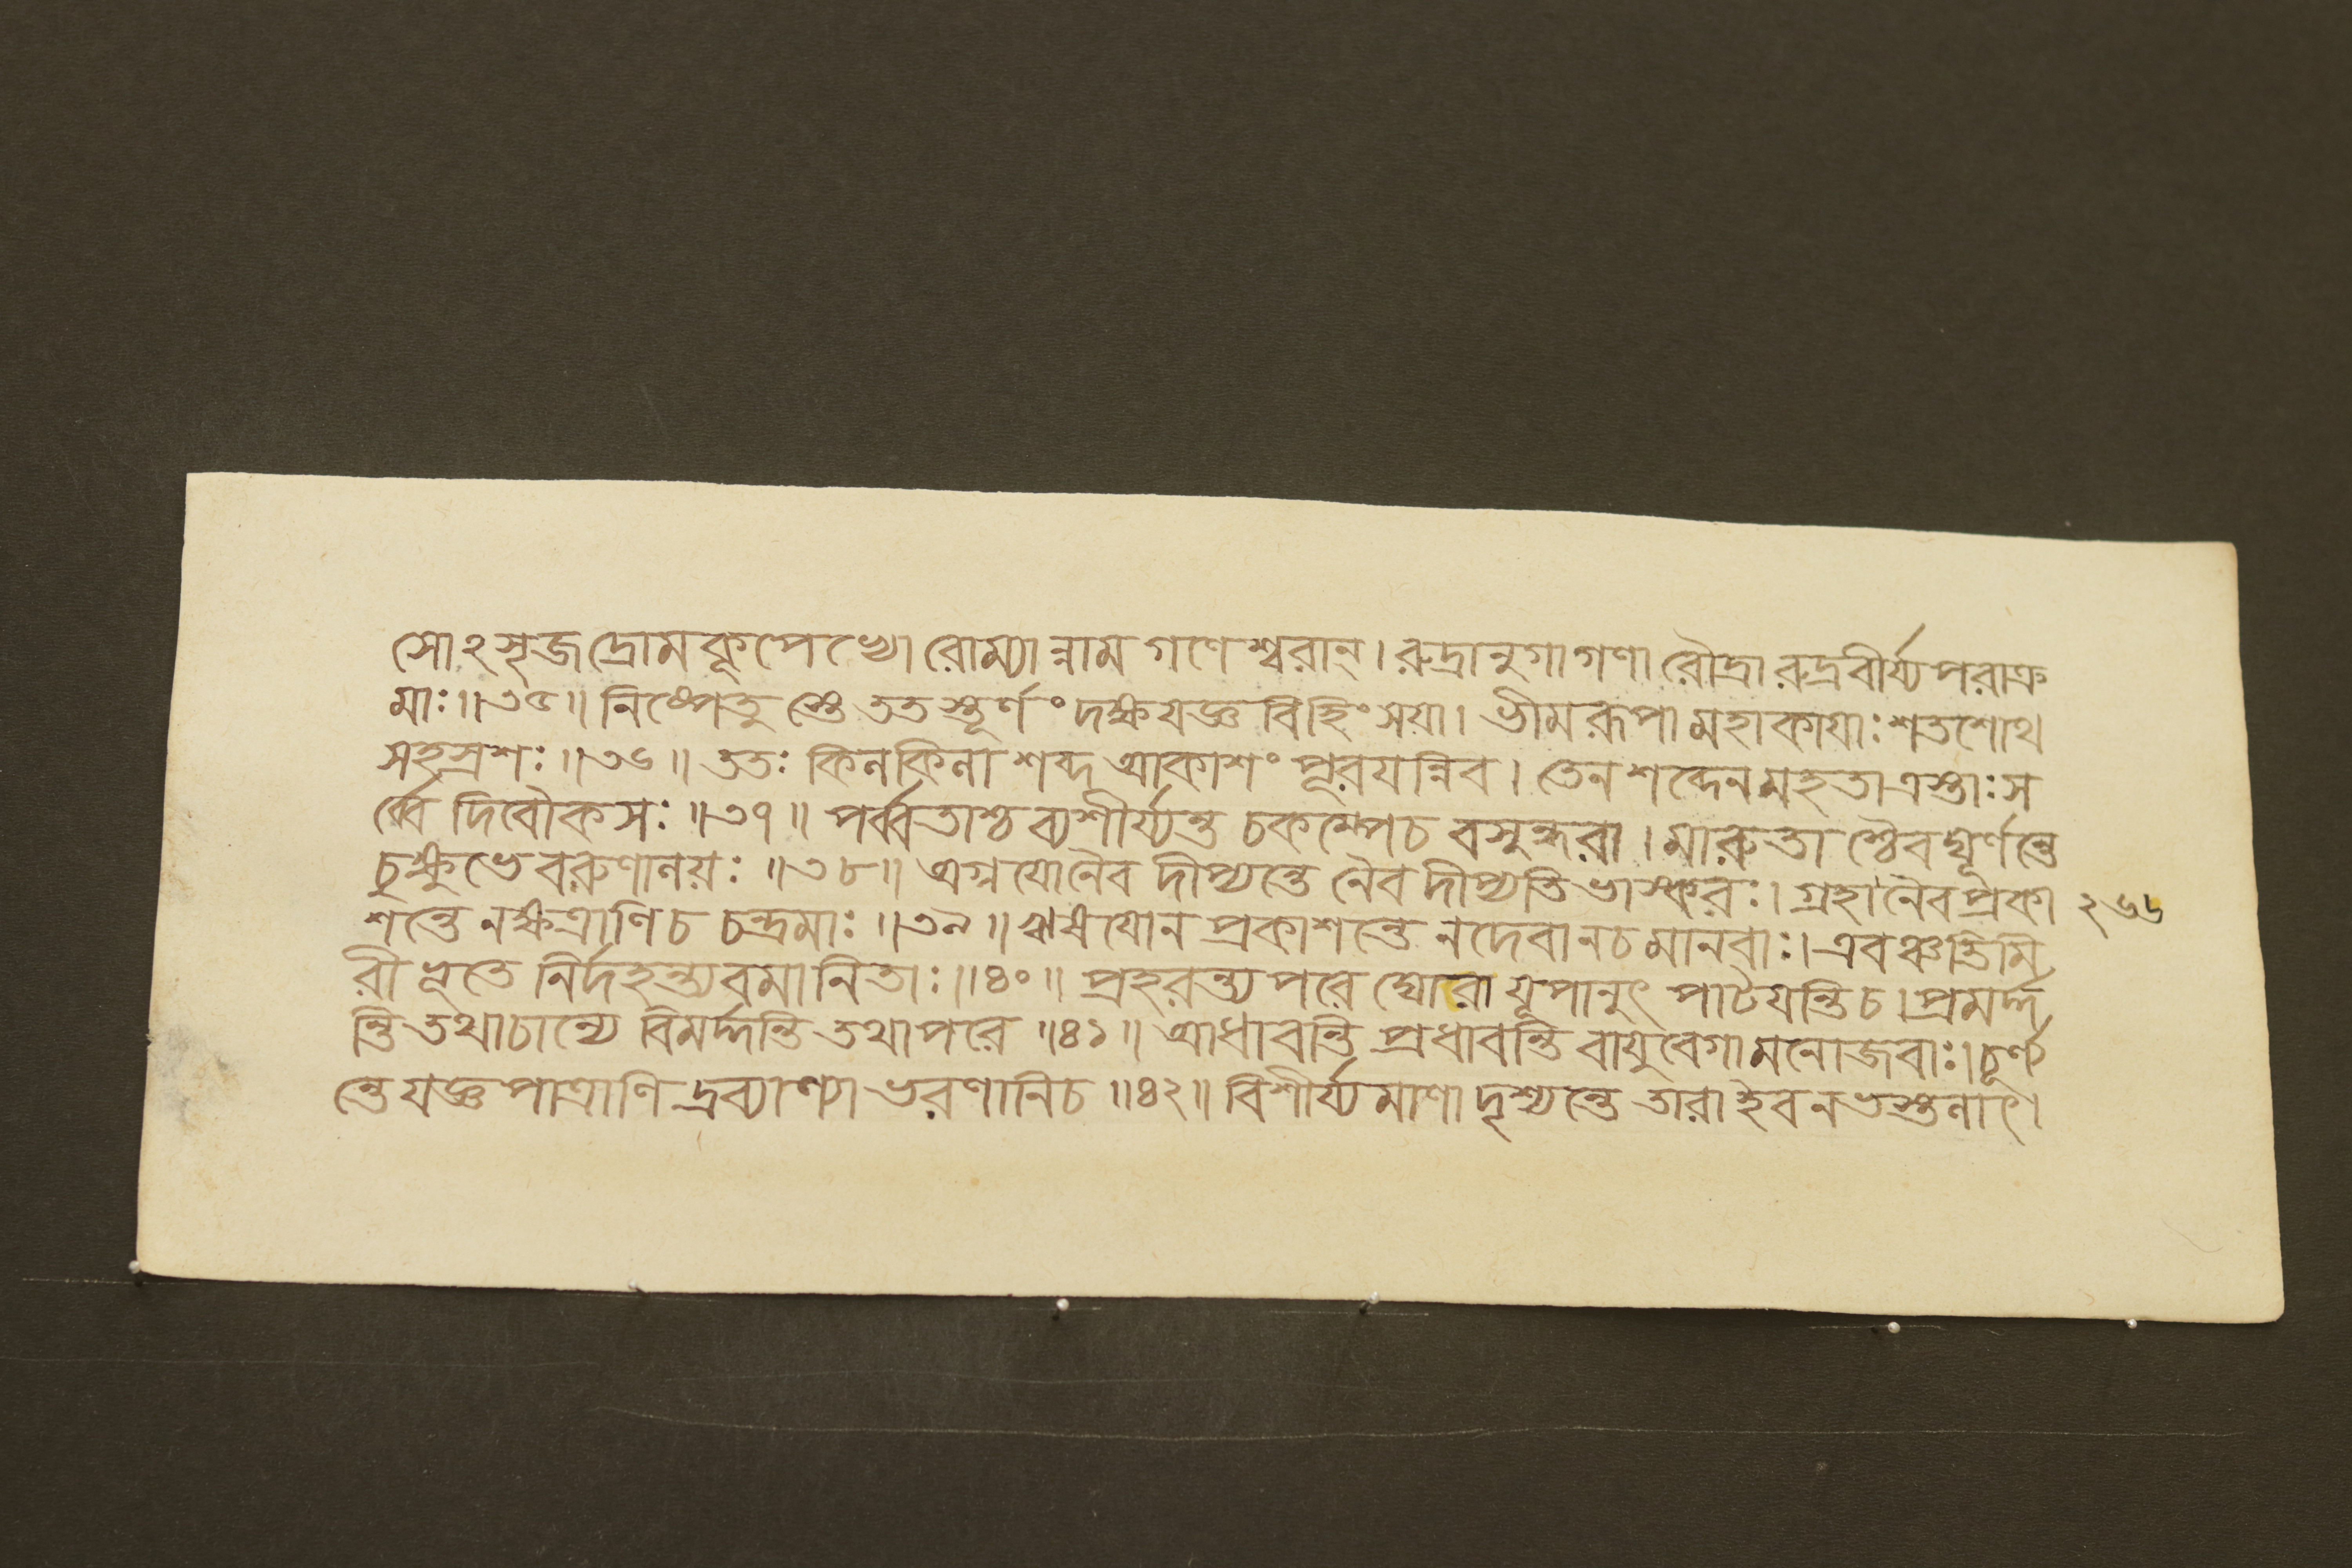 সোঽসৃজদ্রোমকূপেভ্যো রোম্যান্নাম গণেশ্বরান্। রুদ্রানুগাগণা রৌদ্রা রুদ্রবীর্য্যপরাক্র
মাঃ॥৩৫॥ নিষ্পেতুস্তে ততস্তূর্ণং দক্ষযজ্ঞবিহিংসয়া। ভীমরূপা মহাকায়াঃ শতশোথ
সহস্রশঃ॥৩৬॥ ততঃ কিনকিনা শব্দ আকাশং পূরযন্নিব। তেন শব্দেন মহতা ত্রস্তাঃ স
র্ব্বে দিবৌকসঃ॥৩৭॥ পর্ব্বতাশ্চ ব্যশীর্য্যন্ত চকম্পেচ বসুন্ধরা। মারুতাশ্চৈব ঘূর্ণন্তে
চুক্ষুভে বরুণালয়ঃ॥৩৮॥ অগ্নযোনৈব দীপ্যন্তে নৈব দীপ্যতি ভাস্করঃ। গ্রহা নৈব প্রকা
২৬৬
শন্তে নক্ষত্রাণিচ চন্দ্রমাঃ॥৩৯॥ ঋষযোন প্রকাশন্তে নদেবানচমানবাঃ। এবঞ্চতিমি
রীভূতে নির্দহন্ত্যবমানিতাঃ॥৪০॥ প্রহরন্ত্যপরে ঘোরা যূপানুৎ পাটযন্তিচ। প্রমর্দ্দ
ন্তি তথাচান্যে বিমর্দ্দন্তি তথাপরে॥৪১॥ আধাবন্তি প্রধাবন্তি বায়ুবেগামনোজবাঃ। চূর্ণ্য
ন্তে যজ্ঞপাত্রাণি দ্রব্যাণ্যা ভরণানিচ॥৪২॥ বিশীর্য্যমাণা দৃশ্যন্তে তারা ইব নভস্তলাৎ।